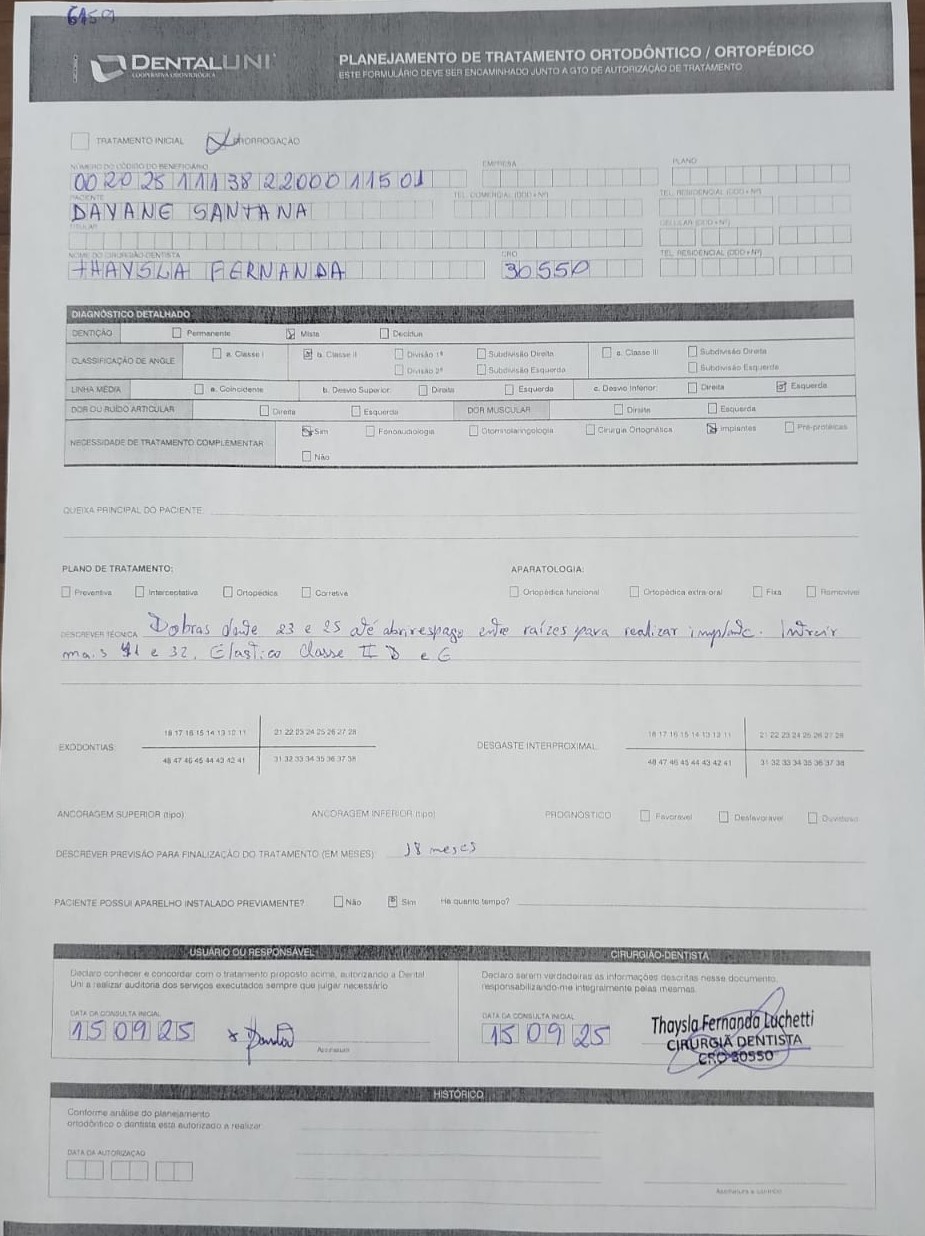 6159
DENTALUNI
COOPERATIVA ODONTOLÓGICA
PLANEJAMENTO DE TRATAMENTO ORTODÔNTICO / ORTOPÉDICO
ESTE FORMULÁRIO DEVE SER ENCAMINHADO JUNTO A GTO DE AUTORIZAÇÃO DE TRATAMENTO
TRATAMENTO INICIAL PRORROGAÇÃO
NÚMERO DO CÓDIGO DO BENEFICIÁRIO EMPRESA PLANO
00 20 25 111 38 22000 11501
PACIENTE TEL. COMERCIAL (DDD + Nº) TEL. RESIDENCIAL (DDD + Nº)
DAYANE SANTANA
TITULAR CELULAR (DDD + Nº)
NOME DO CIRURGIÃO-DENTISTA CRO TEL. RESIDENCIAL (DDD + Nº)
THAYSLA FERNANDA 30550
DIAGNÓSTICO DETALHADO
DENTIÇÃO Permanente Mista Decídua
CLASSIFICAÇÃO DE ANGLE a. Classe I b. Classe II Divisão 1ª Subdivisão Direita a. Classe III Subdivisão Direita
Divisão 2ª Subdivisão Esquerda Subdivisão Esquerda
LINHA MÉDIA a. Coincidente b. Desvio Superior: Direita Esquerda c. Desvio Inferior: Direita Esquerda
DOR OU RUÍDO ARTICULAR Direita Esquerda DOR MUSCULAR Direita Esquerda
NECESSIDADE DE TRATAMENTO COMPLEMENTAR Sim Fonoaudiologia Otorrinolaringologia Cirurgia Ortognática Implantes Pré-protéticas
Não
QUEIXA PRINCIPAL DO PACIENTE:
PLANO DE TRATAMENTO: APARATOLOGIA:
Preventiva Interceptativa Ortopédica Corretiva Ortopédica funcional Ortopédica extra oral Fixa Removível
DESCREVER TÉCNICA Dobras dente 23 e 25 até abrir espaço entre raízes para realizar implante. Intruir
mais 41 e 32. Elástico Classe II D e E
EXODONTIAS: 18 17 16 15 14 13 12 11 21 22 23 24 25 26 27 28 DESGASTE INTERPROXIMAL: 18 17 16 15 14 13 12 11 21 22 23 24 25 26 27 28
48 47 46 45 44 43 42 41 31 32 33 34 35 36 37 38 48 47 46 45 44 43 42 41 31 32 33 34 35 36 37 38
ANCORAGEM SUPERIOR (tipo) ANCORAGEM INFERIOR (tipo) PROGNÓSTICO Favorável Desfavorável Duvidoso
DESCREVER PREVISÃO PARA FINALIZAÇÃO DO TRATAMENTO (EM MESES) 18 meses
PACIENTE POSSUI APARELHO INSTALADO PREVIAMENTE? Não Sim Há quanto tempo?
USUÁRIO OU RESPONSÁVEL CIRURGIÃO-DENTISTA
Declaro conhecer e concordar com o tratamento proposto acima, autorizando a Dental
Uni a realizar auditoria dos serviços executados sempre que julgar necessário
Declaro serem verdadeiras as informações descritas nesse documento,
responsabilizando-me integralmente pelas mesmas.
DATA DA CONSULTA INICIAL DATA DA CONSULTA INICIAL
15 09 25 Assinatura 15 09 25
Thaysla Fernanda Luchetti
CIRURGIÃ DENTISTA
CRO 30550
HISTÓRICO
Conforme análise do planejamento
ortodôntico o dentista está autorizado a realizar
DATA DA AUTORIZAÇÃO
Assinatura e carimbo